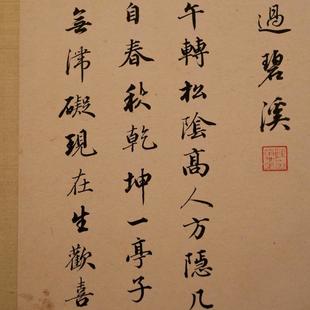 過碧溪
午轉松陰高人方隱几
自春秋乾坤一亭子
無滯礙現在生歡喜